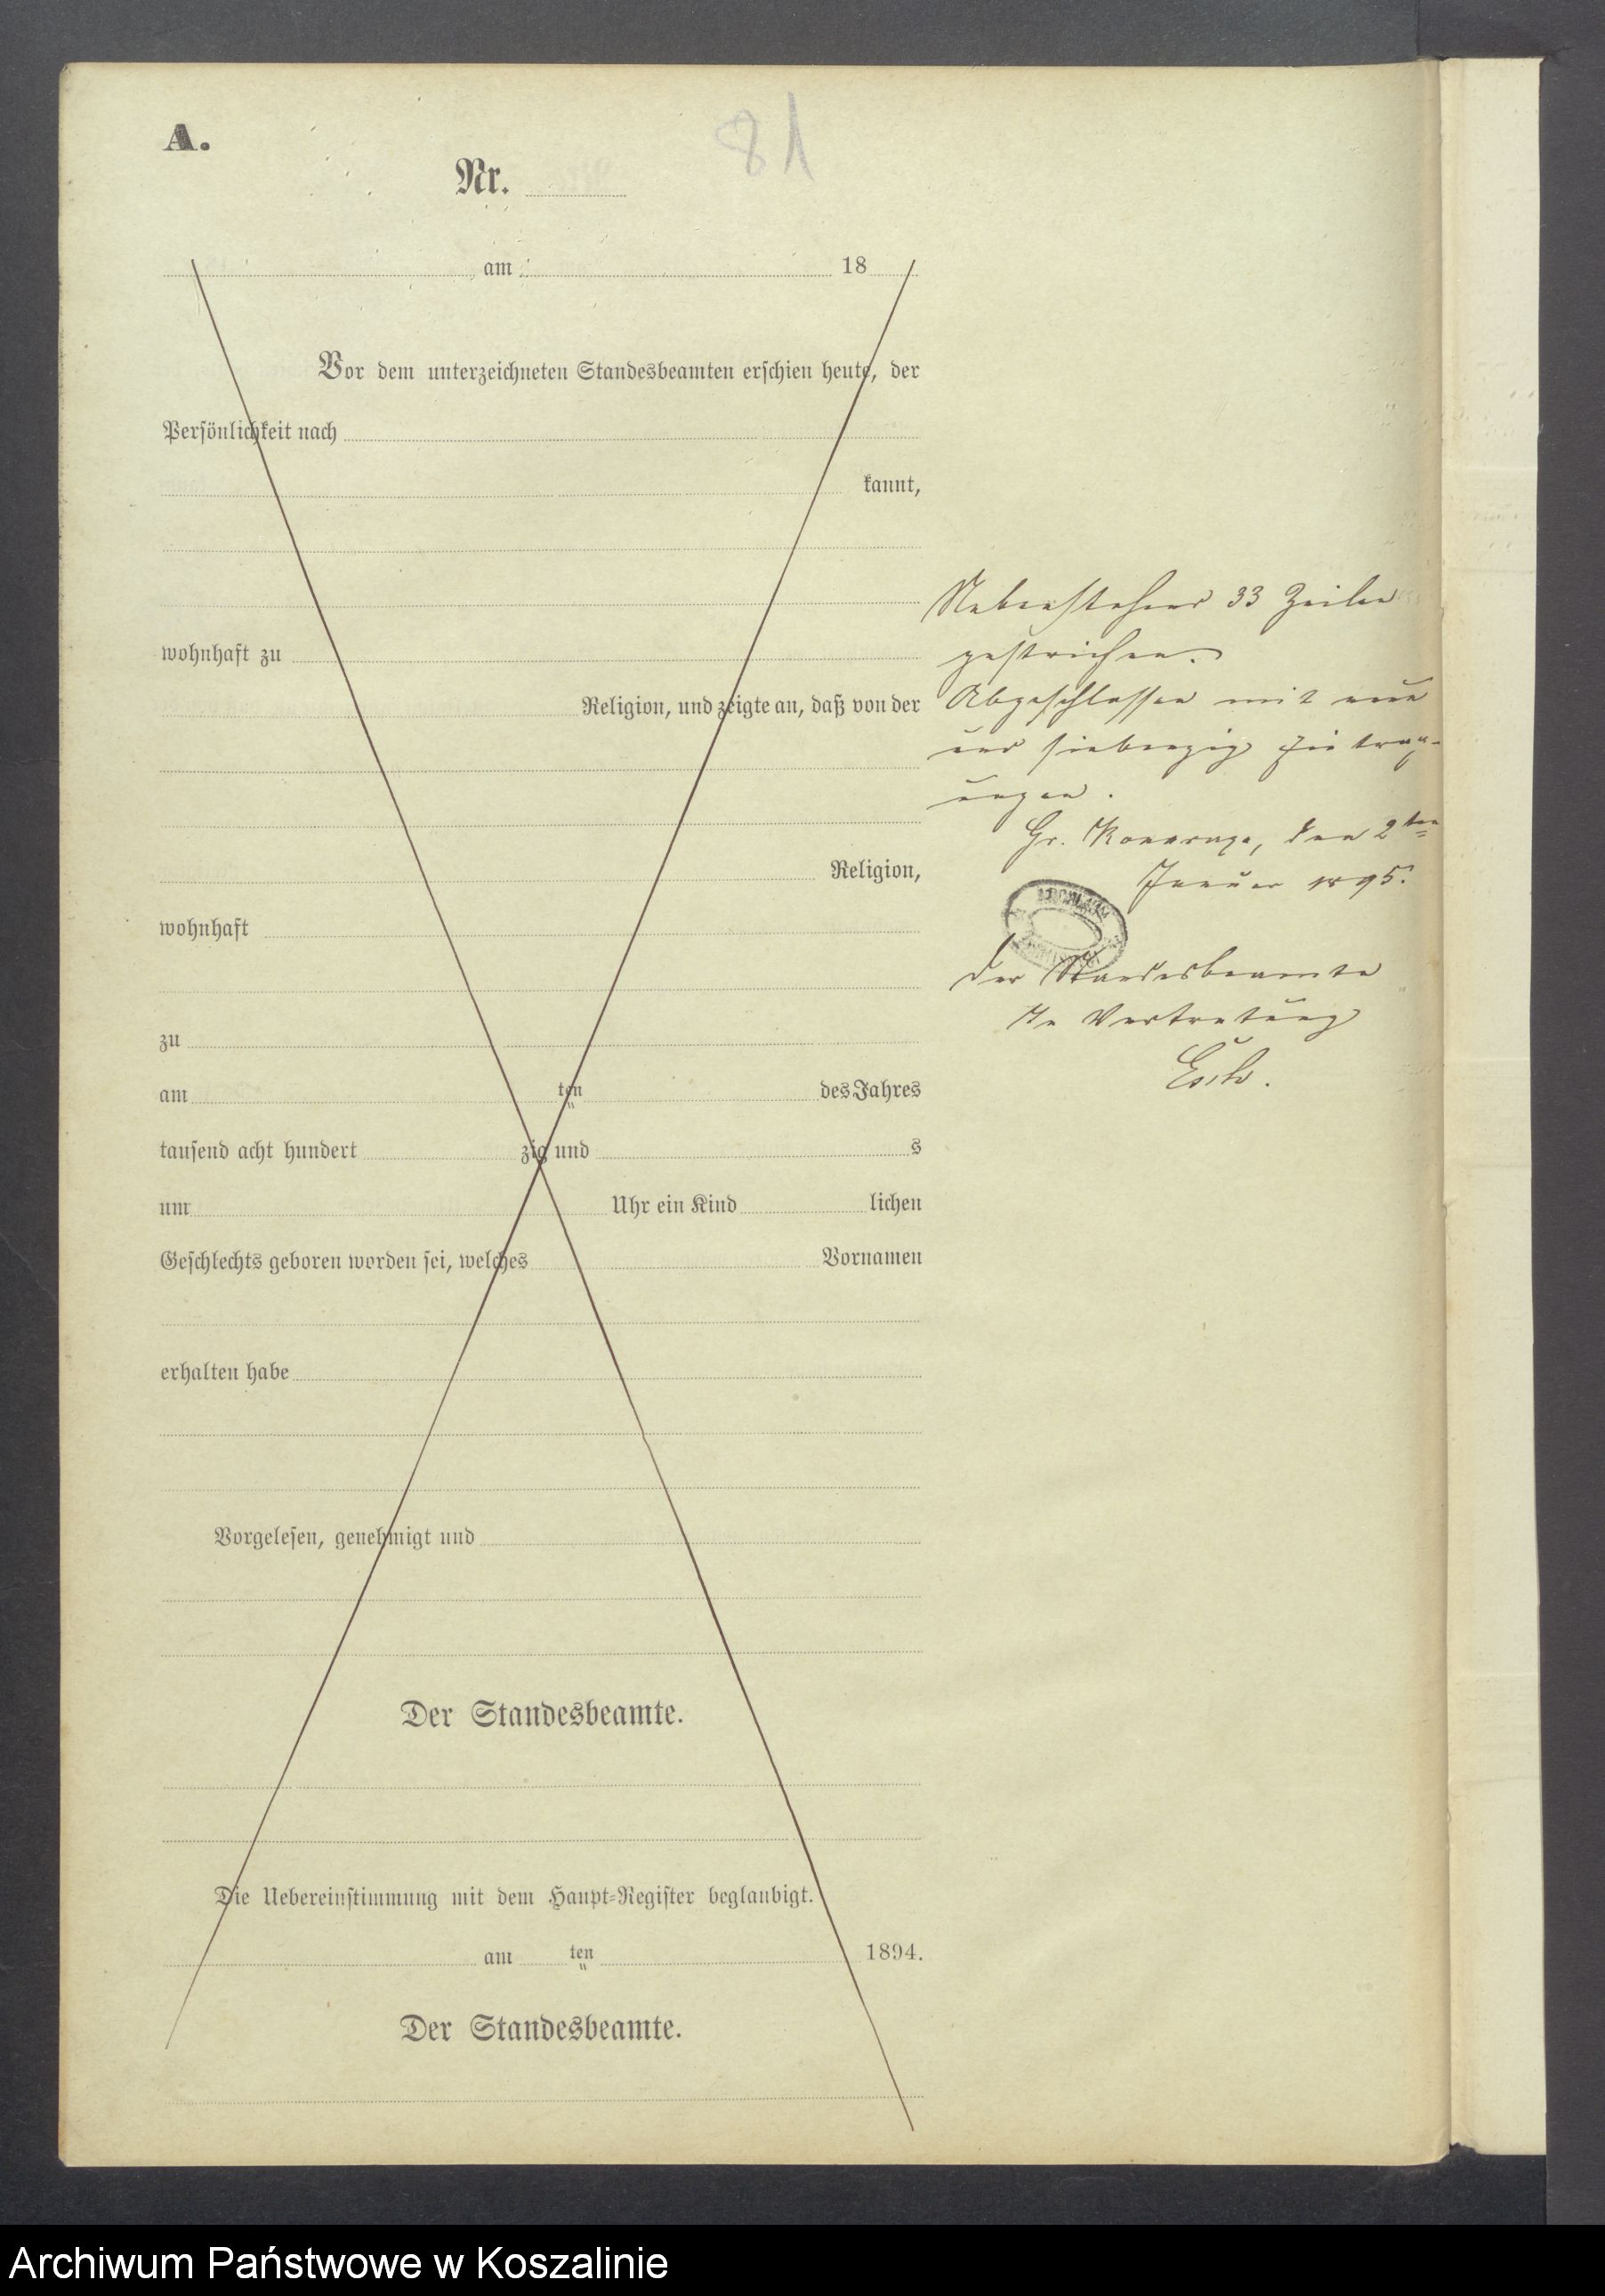 A.
81
Nr.
am 18
Vor dem unterzeichneten Standesbeamten erschien heute, der
Persönlichkeit nach
kannt,
wohnhaft zu
Religion, und zeigte an, daß von der
Religion,
wohnhaft
zu
am ten des Jahres
tausend acht hundert zig und s
um Uhr ein Kind lichen
Geschlechts geboren worden sei, welches Vornamen
erhalten habe
Vorgelesen, genehmigt und
Der Standesbeamte.
Die Uebereinstimmung mit dem Haupt-Register beglaubigt.
am ten 1894.
Der Standesbeamte.
Nebenstehend 33 Zeilen
gestrichen.
Abgeschlossen mit
und siebenzig Eintrag-
ungen.
Gr. den 2ten
Januar 1895.
Der Standesbeamte
In Vertretung
Archiwum Państwowe w Koszalinie